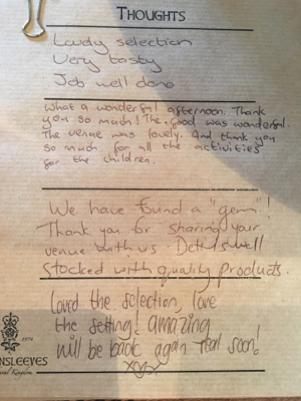 THOUGHTS
Lovely selection
Very tasty
Job well done
What a wonderful afternoon. Thank
you so much! The food was wonderful.
The venue was lovely. And thank you
so much for all the activities
for the children.
We have found a "gem"!
Thank you for sharing your
venue with us. Deli is well
stocked with quality products.
Loved the selection, love
the setting! amazing
will be back again real soon!
1974
NSLEEVES
Kingdom